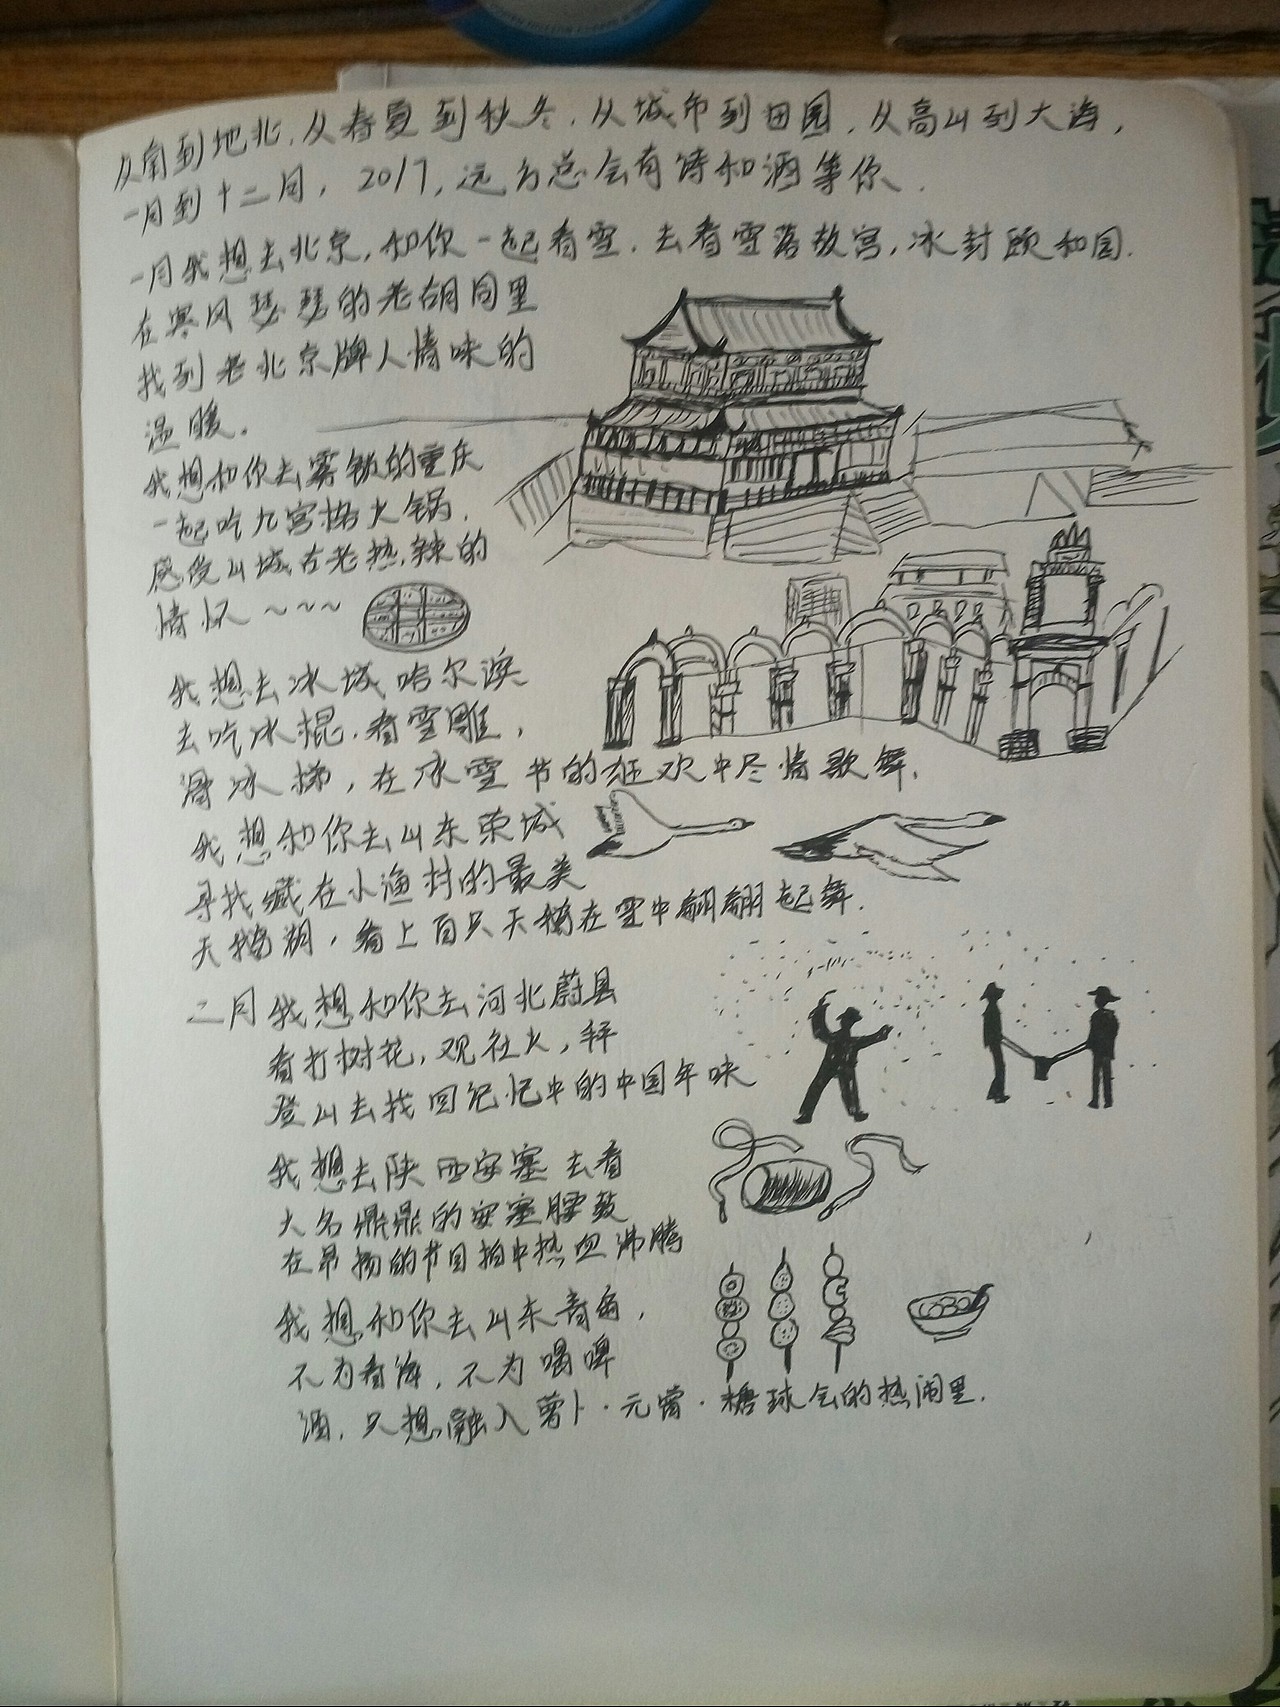 从南到地北，从春夏到秋冬，从城市到田园，从高山到大海，
一月到十二月，2017，远方总会有诗和酒等你．
一月我想去北京，和你一起看雪．去看雪落故宫，冰封颐和园．
在寒风瑟瑟的老胡同里
找到老北京牌人情味的
温暖．
我想和你去雾都的重庆
一起吃九宫格火锅．
感受山城古老热辣的
情怀~~~
我想去冰城哈尔滨
去吃冰棍．看雪雕，
滑冰梯，在冰雪节的狂欢中尽情歌舞．
我想和你去山东荣城
寻找藏在小渔村的最美
天鹅湖，看上百只天鹅在雪中翩翩起舞．
二月我想和你去河北蔚县
看打树花，观社火，拜
登山去找回记忆中的中国年味
我想去陕西安塞去看
大名鼎鼎的安塞腰鼓
在昂扬的节目拍中热血沸腾
我想和你去山东青岛，
不为看海，不为喝啤
酒．只想融入萝卜·元宵·糖球会的热闹里．